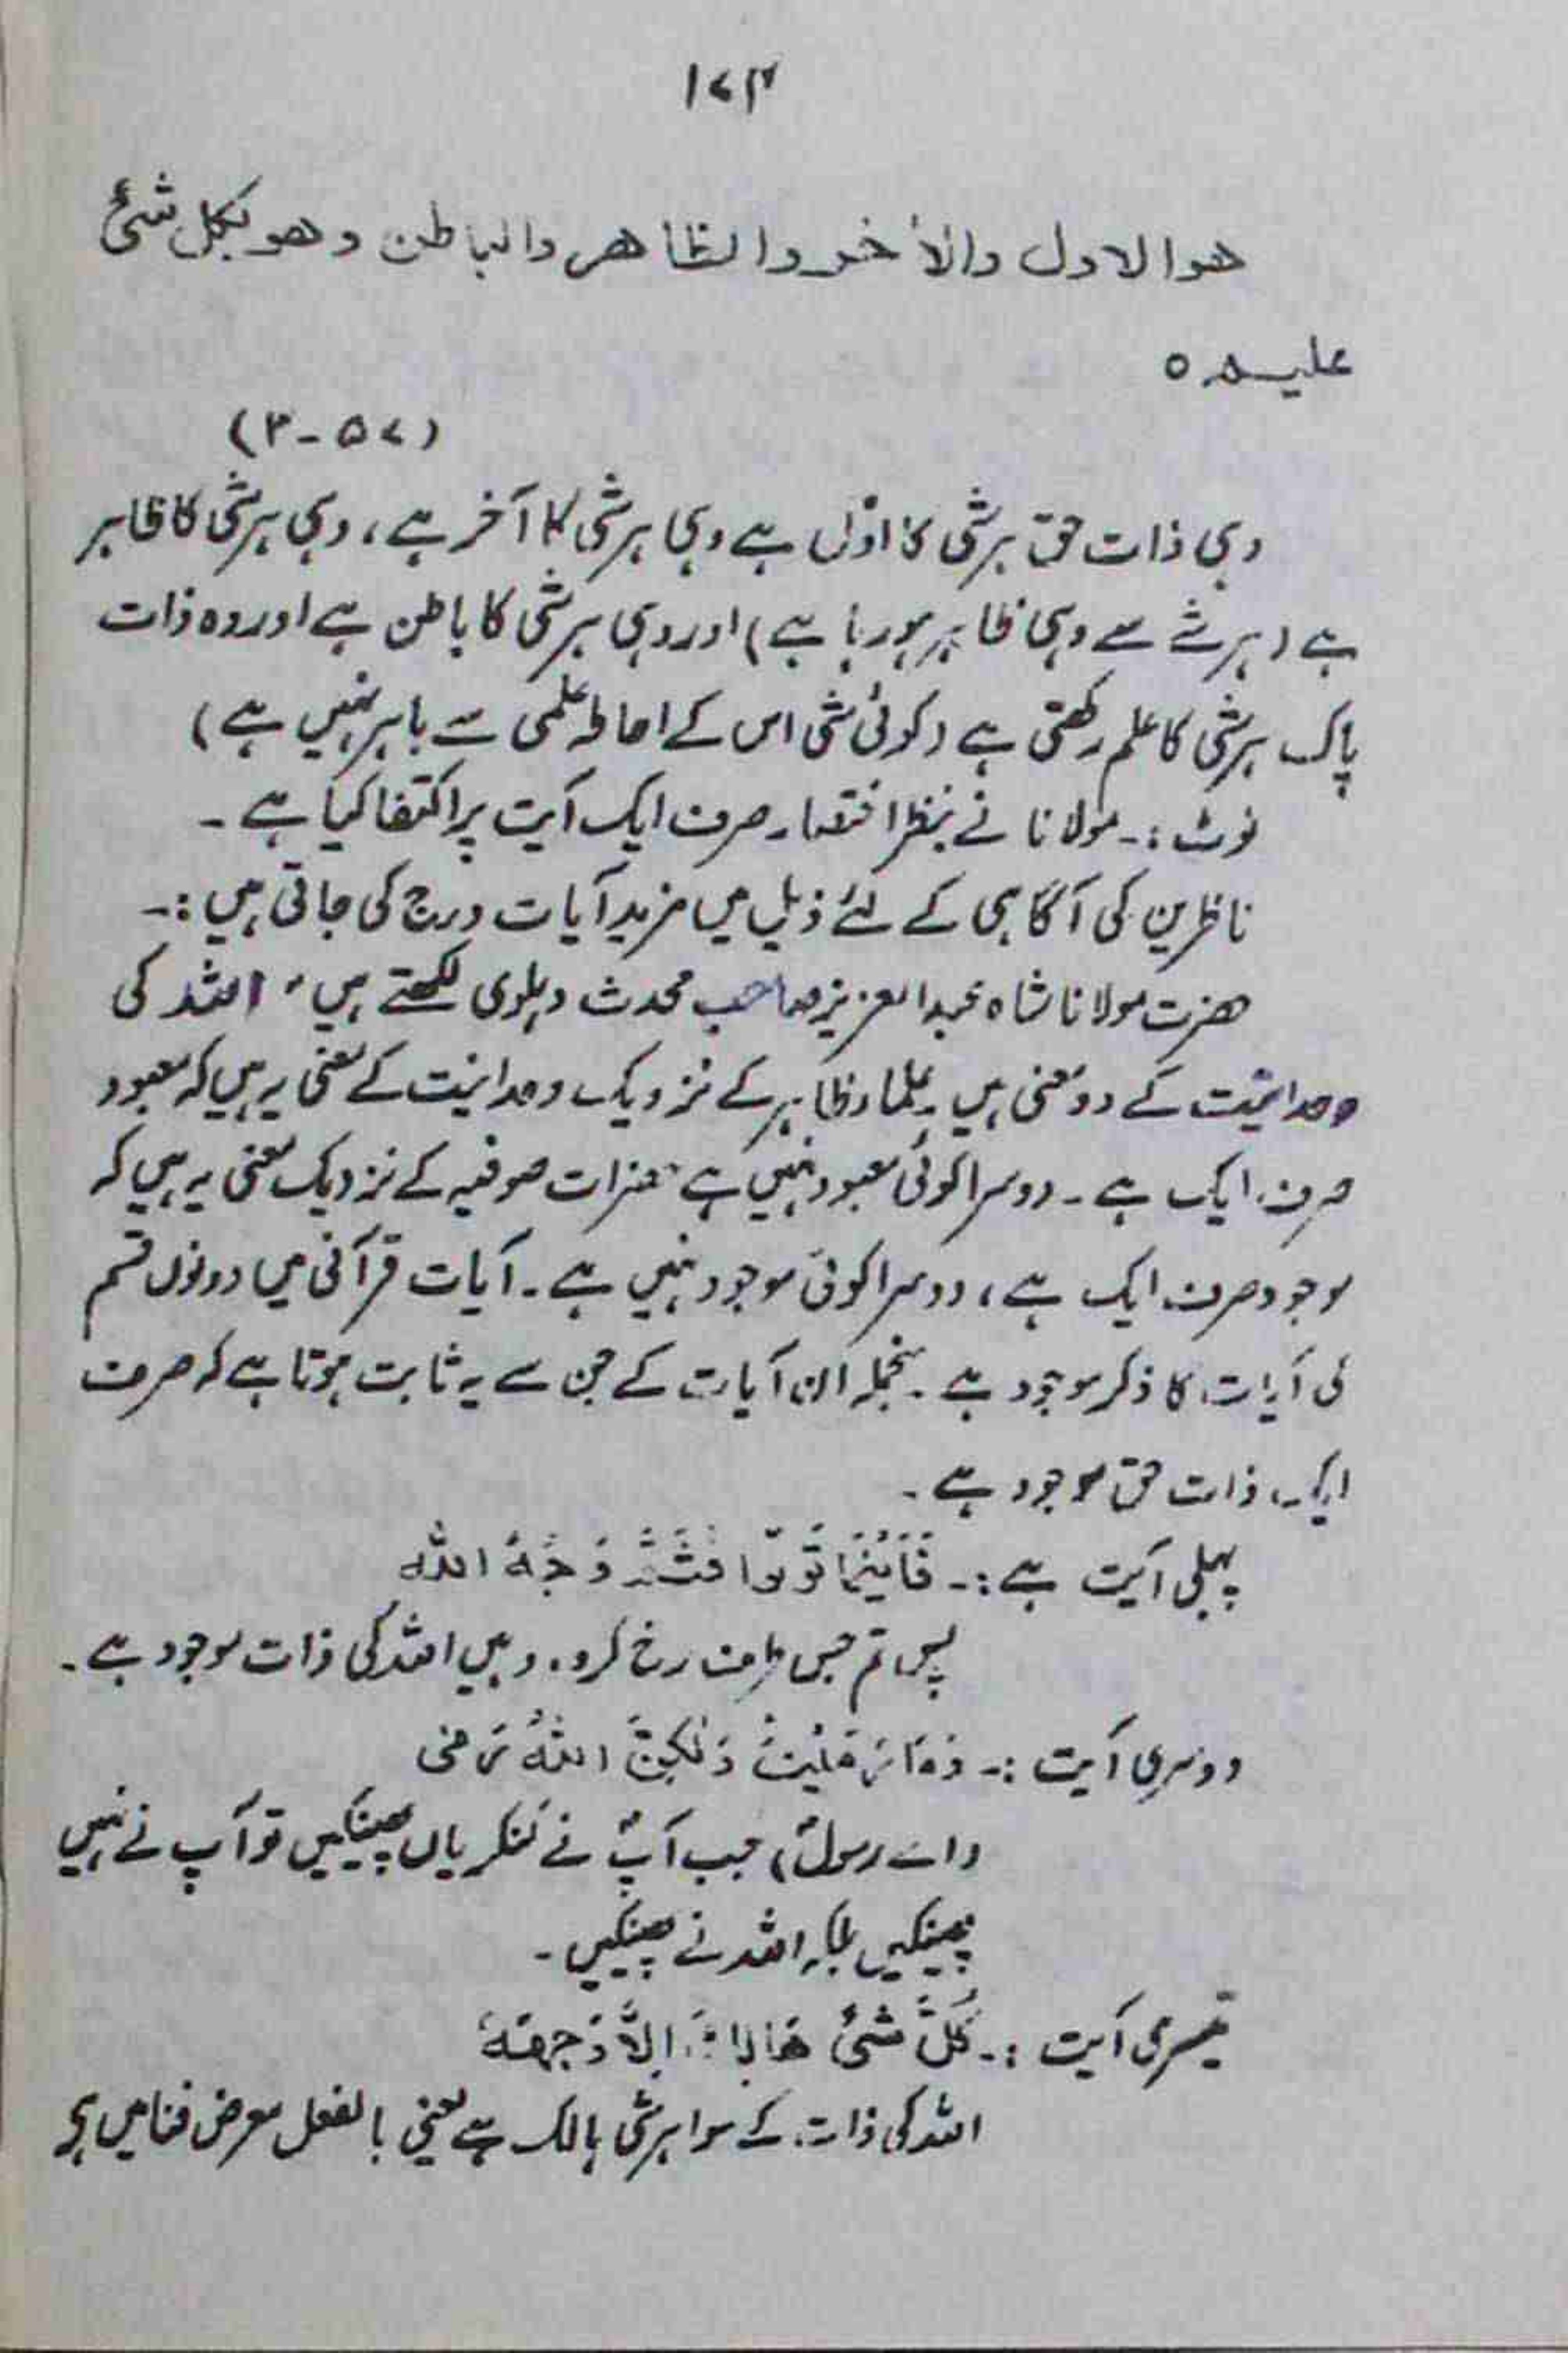 ۱۷۴
هو الاول والأخر والظاهر والباطن وهو بكل شئ
عليم ه
(۵۷-۳)
وہی ذات حق ہر شی کا اوّل ہے وہی ہر شی کا آخر ہے، وہی ہر شی کا ظاہر
ہے (ہر شے سے وہی ظاہر ہو رہا ہے) اور وہی ہر شی کا باطن ہے اور وہ ذات
پاک ہر شی کا علم رکھتی ہے (کوئی شی اس کے احاطۂ علمی سے باہر نہیں ہے)
نوٹ :۔ مولانا نے بنظر اختصار صرف ایک آیت پر اکتفا کیا ہے ۔
ناظرین کی آگاہی کے لئے ذیل میں مزید آیات درج کی جاتی ہیں :۔
حضرت مولانا شاہ عبدالعزیز صاحب محدث دہلوی لکھتے ہیں " اللہ کی
وحدانیت کے دو معنی ہیں علماء ظاہر کے نزدیک وحدانیت کے معنی یہ ہیں کہ معبود
صرف ایک ہے ۔ دوسرا کوئی معبود نہیں ہے حضرات صوفیہ کے نزدیک معنی یہ ہیں کہ
موجود صرف ایک ہے، دوسرا کوئی موجود نہیں ہے ۔ آیات قرآنی میں دونوں قسم
کی آیات کا ذکر موجود ہے ۔ منجملہ ان آیات کے جن سے یہ ثابت ہوتا ہے کہ صرف
ایک ذات حق موجود ہے ۔
پہلی آیت ہے :۔ فَاَيْنَمَا تُوَلُّوا فَثَمَّ وَجْهُ اللّٰه
پس تم جس طرف رخ کرو، وہیں اللہ کی ذات موجود ہے ۔
دوسری آیت :۔ وَمَا رَمَيْتَ وَلٰكِنَّ اللّٰهَ رَمٰى
(اے رسولؐ) جب آپؐ نے کنکریاں پھینکیں تو آپ نے نہیں
پھینکیں بلکہ اللہ نے پھینکیں ۔
تیسری آیت :۔ كُلُّ شَئٍ هَالِكٌ اِلَّا وَجْهَهٗ
اللہ کی ذات کے سوا ہر شی ہالک ہے یعنی بالفعل معرض فنا میں ہے